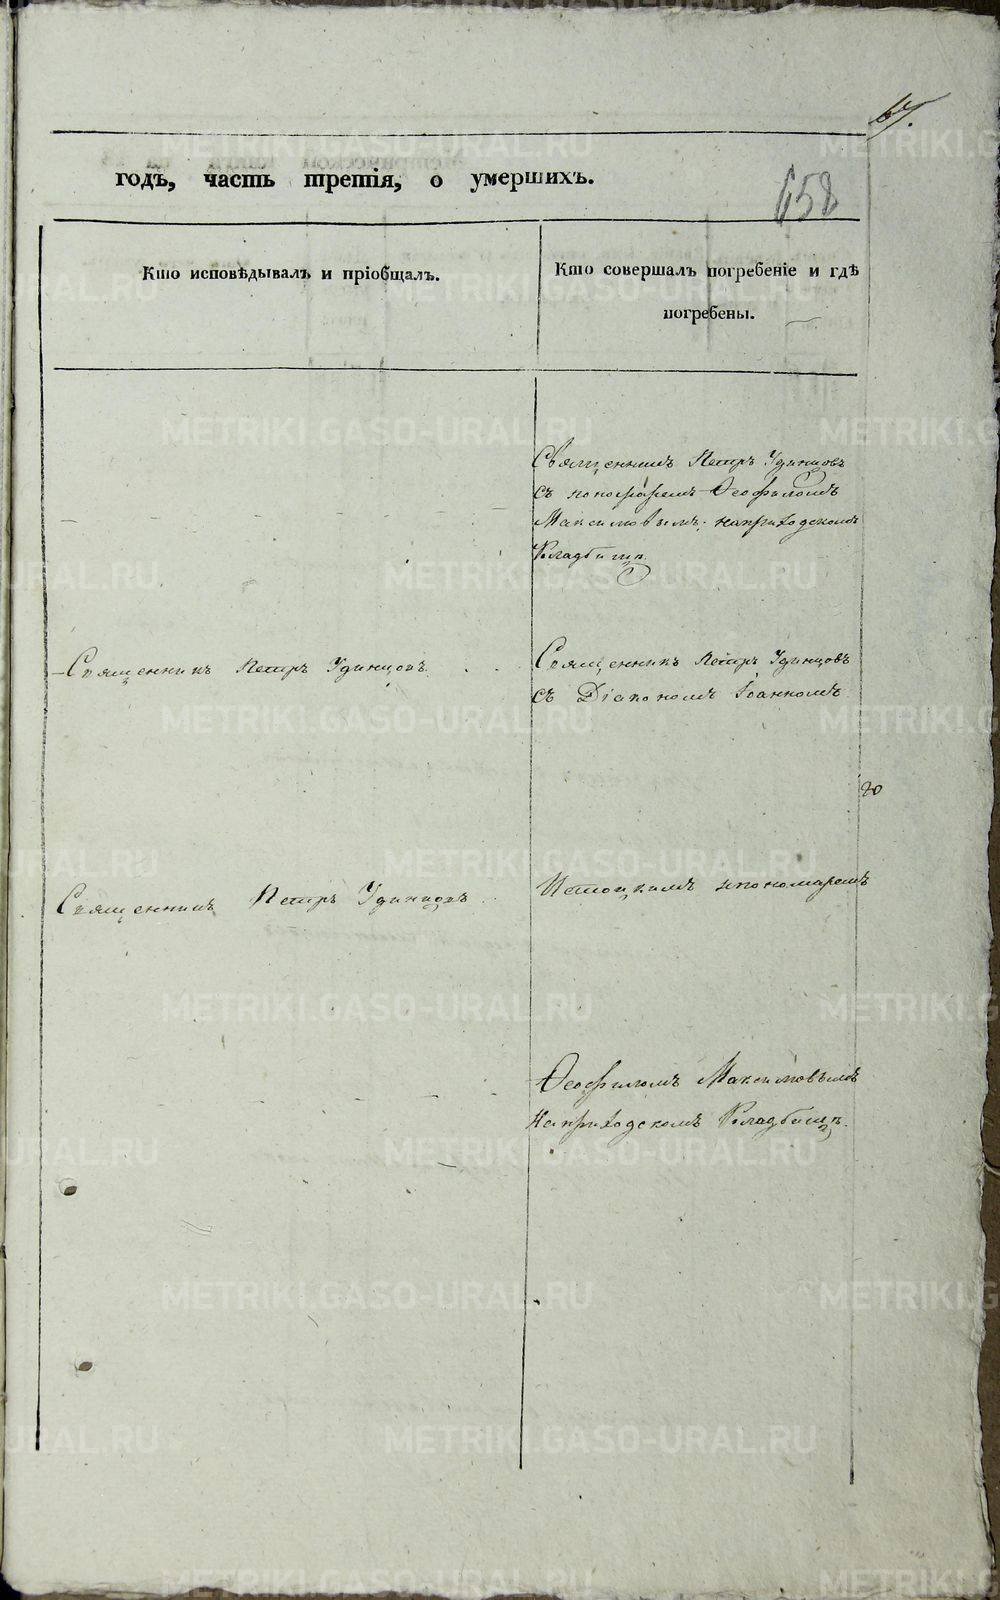 67.
годъ, часть третія, о умершихъ.
658
Кто исповѣдывалъ и пріобщалъ.
Кто совершалъ погребеніе и гдѣ
погребены.
Священникъ Петръ Удинцовъ
съ пономаремъ Ѳеофиломъ
Максимовымъ, на приходскомъ
Кладбищѣ.
Священникъ Петръ Удинцовъ
Священникъ Петръ Удинцовъ
съ Діакономъ Іоанномъ
Священникъ Петръ Удинцовъ
Истоцкимъ и пономаремъ
Ѳеофиломъ Максимовымъ
На приходскомъ Кладбищѣ.
METRIKI.GASO-URAL.RU